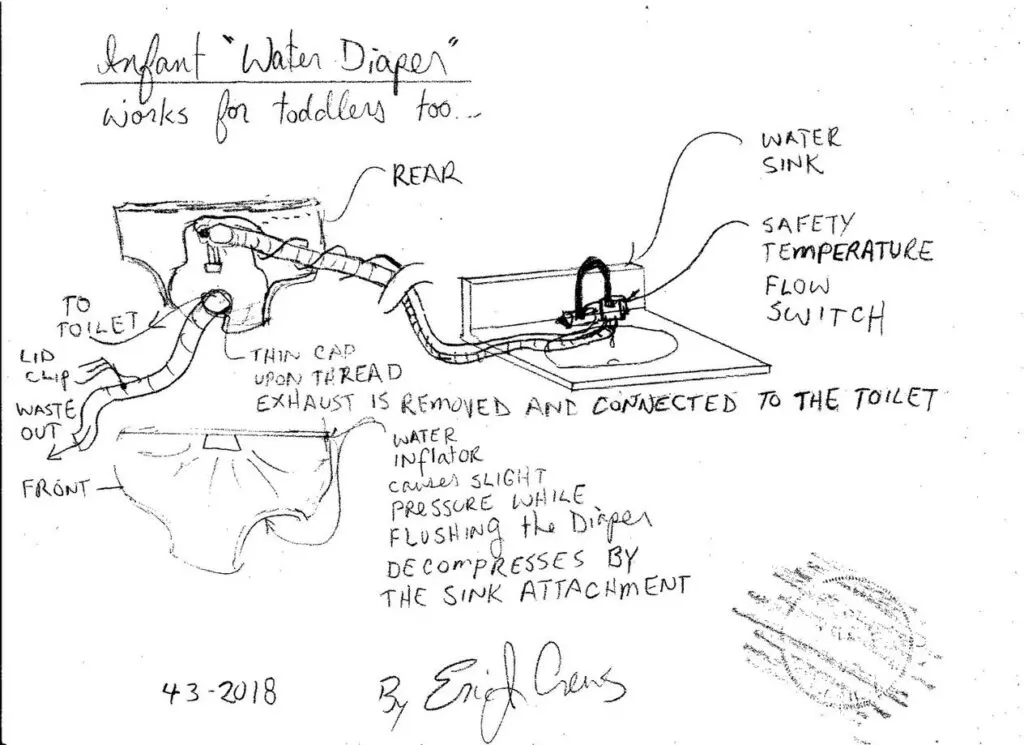 Infant "Water Diaper"
works for toddlers too...
WATER
SINK
REAR
SAFETY
TEMPERATURE
FLOW
SWITCH
TO
TOILET
LID
CLIP
WASTE
OUT
THIN CAP
UPON THREAD
EXHAUST IS REMOVED AND CONNECTED TO THE TOILET
FRONT
WATER
INFLATOR
CAUSES SLIGHT
PRESSURE WHILE
FLUSHING the Diaper
DECOMPRESSES BY
THE SINK ATTACHMENT
43-2018
By Eric J Crews